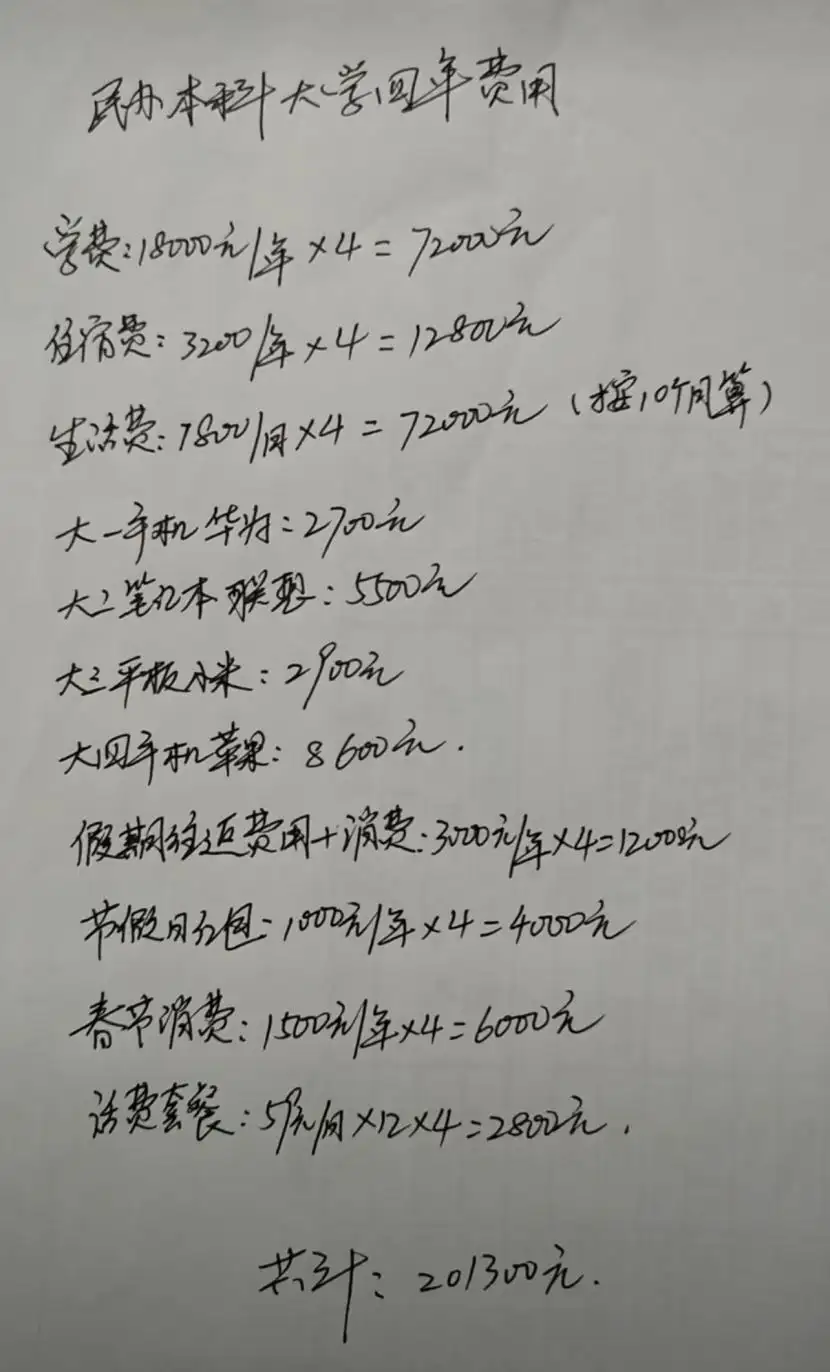 民办本科大学四年费用
学费:18000元/年×4=72000元
住宿费:3200/年×4=12800元
生活费:1800/月×4=72000元(按10个月算)
大一手机华为:2700元
大二笔记本联想:5500元
大三平板小米:2900元
大四手机苹果:8600元.
假期往返费用+消费:3000元/年×4=12000元
节假日红包:1000元/年×4=4000元
春节消费:1500元/年×4=6000元
话费套餐:59元/月×12×4=2800元.
共计:201300元.